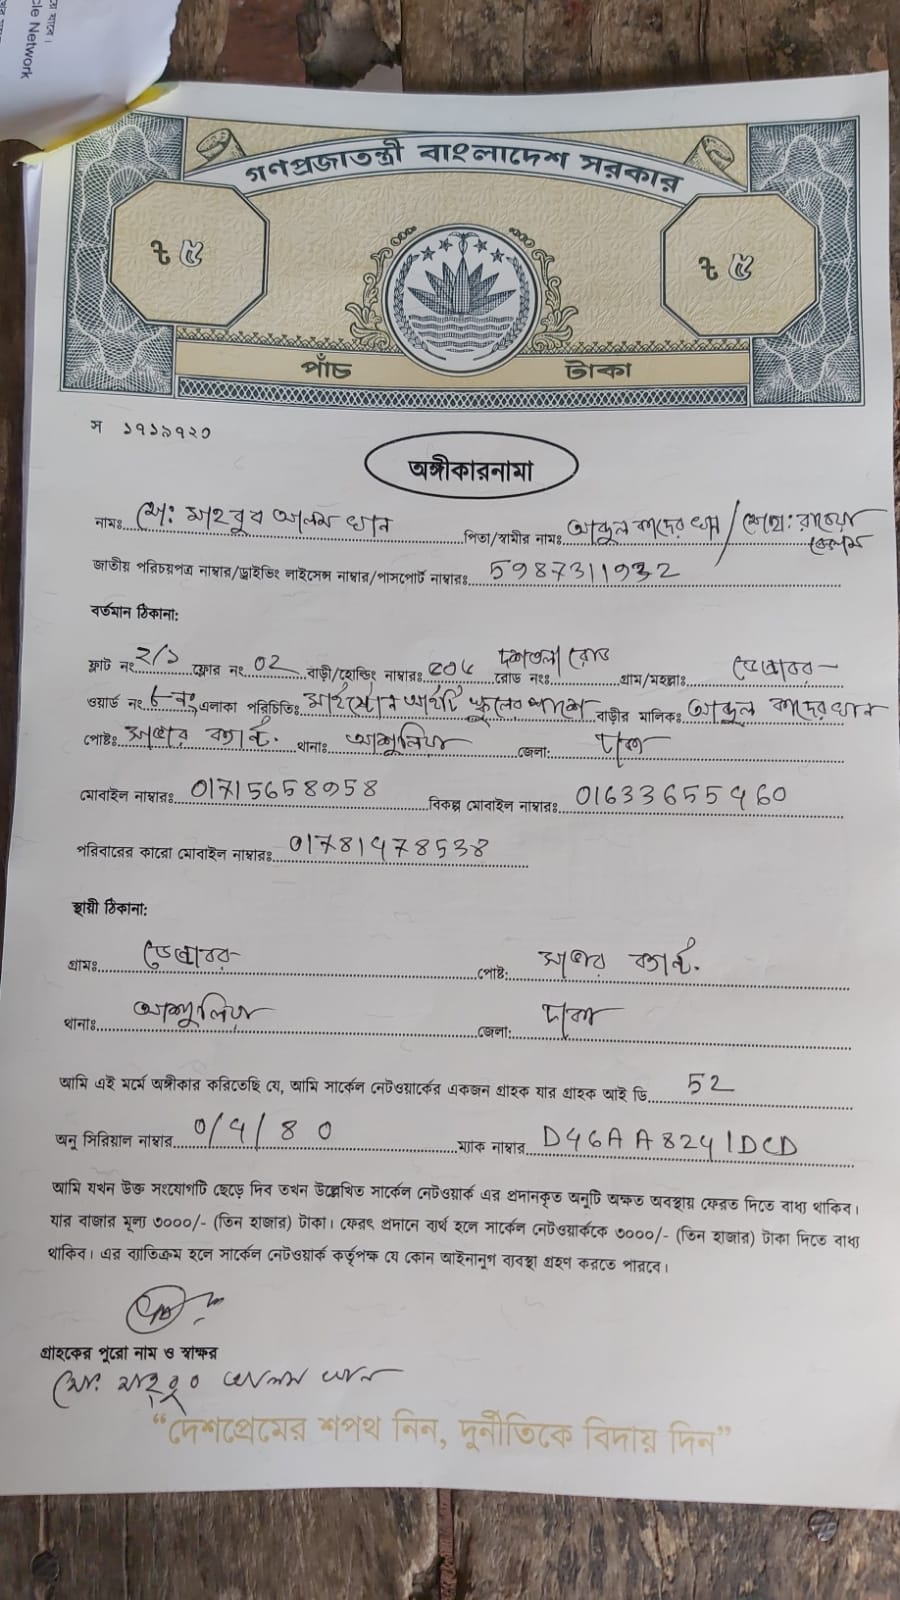 cle Network
গণপ্রজাতন্ত্রী বাংলাদেশ সরকার
৳ ৫ ৳ ৫
পাঁচ টাকা
স ১৭১৯৭২০
অঙ্গীকারনামা
নামঃ মো: মাহবুব আলম খান পিতা/স্বামীর নামঃ আব্দুল কাদের খান / মোছা: রাবেয়া
বেগম
জাতীয় পরিচয়পত্র নাম্বার/ড্রাইভিং লাইসেন্স নাম্বার/পাসপোর্ট নাম্বারঃ 5987311932
বর্তমান ঠিকানা:
ফ্লাট নং ২/১ ফ্লোর নং 02 বাড়ী/হোল্ডিং নাম্বারঃ রোড নংঃ রোড গ্রাম/মহল্লাঃ
ওয়ার্ড নং ৮নং এলাকা পরিচিতিঃ স্কুলের পাশে বাড়ীর মালিকঃ আব্দুল কাদের খান
পোষ্টঃ সাভার ক্যান্ট. থানাঃ আশুলিয়া জেলা: ঢাকা
মোবাইল নাম্বারঃ 01715658958 বিকল্প মোবাইল নাম্বারঃ 01633655960
পরিবারের কারো মোবাইল নাম্বারঃ 01781978538
স্থায়ী ঠিকানা:
গ্রামঃ পোষ্ট: সাভার ক্যান্ট.
থানাঃ আশুলিয়া জেলা: ঢাকা
আমি এই মর্মে অঙ্গীকার করিতেছি যে, আমি সার্কেল নেটওয়ার্কের একজন গ্রাহক যার গ্রাহক আই ডি 52
অনু সিরিয়াল নাম্বার 0/4/80 ম্যাক নাম্বার D46AA8241DCD
আমি যখন উক্ত সংযোগটি ছেড়ে দিব তখন উল্লেখিত সার্কেল নেটওয়ার্ক এর প্রদানকৃত অনুটি অক্ষত অবস্থায় ফেরত দিতে বাধ্য থাকিব।
যার বাজার মূল্য ৩০০০/- (তিন হাজার) টাকা। ফেরৎ প্রদানে ব্যর্থ হলে সার্কেল নেটওয়ার্ককে ৩০০০/- (তিন হাজার) টাকা দিতে বাধ্য
থাকিব। এর ব্যতিক্রম হলে সার্কেল নেটওয়ার্ক কর্তৃপক্ষ যে কোন আইনানুগ ব্যবস্থা গ্রহণ করতে পারবে।
গ্রাহকের পুরো নাম ও স্বাক্ষর
মো: মাহবুব আলম খান
“দেশপ্রেমের শপথ নিন, দুর্নীতিকে বিদায় দিন”